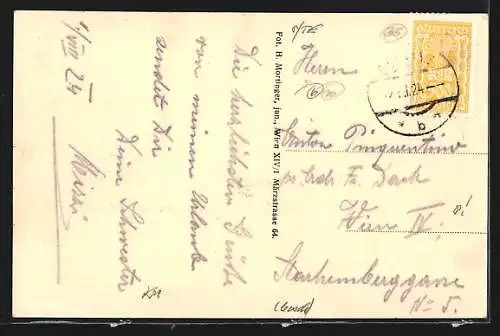 5/VIII 24
Die herzlichsten Grüße
von meinem Urlaub
sendet Dir
Deine Schwester
Fot. H. Mortinger, jun., Wien XIV/1 Märzstrasse 64.
Herrn
Anton Pinquentino
Wien IV.
Starhemberggasse
No 5.
35
24
* b *